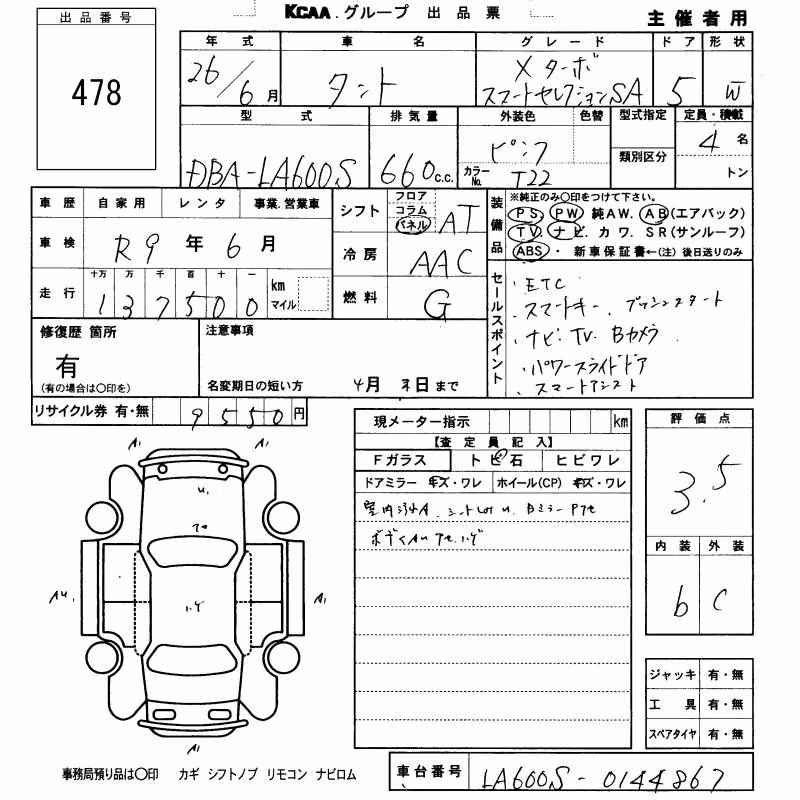 KCAA.グループ 出品票
主催者用
出品番号
478
年式 車名 グレード ドア 形状
26/6月 タント Xターボ スマートセレクションSA 5 W
型式 排気量 外装色 色替 型式指定 定員・積載
DBA-LA600S 660c.c. ピンク カラーNo. T22 類別区分 4名 トン
車歴 自家用 レンタ 事業.営業車
車検 R9年6月
走行 十万 万 千 百 十 一 km マイル
137500
シフト フロア コラム パネル AT
冷房 AAC
燃料 G
装備品 ※純正のみ〇印をつけて下さい。
PS PW 純AW. AB(エアバック)
TV. ナビ. カワ. SR(サンルーフ)
ABS・ 新車保証書←(注) 後日送りのみ
セールスポイント
・ETC
・スマートキー.プッシュスタート
・ナビ.TV.Bカメラ
・パワースライドドア
・スマートアシスト
修復歴 箇所
有
(有の場合は〇印を)
注意事項
名変期日の短い方 4月末日まで
リサイクル券 有・無 9550円
現メーター指示 km
【査定員記入】
Fガラス トビ石 ヒビワレ
ドアミラー キズ・ワレ ホイール(CP) キズ・ワレ
評価点
3.5
内装 外装
b C
A1 A1
U1
AU1 A1
ジャッキ 有・無
工具 有・無
スペアタイヤ 有・無
事務局預り品は〇印 カギ シフトノブ リモコン ナビロム
車台番号 LA600S-0144867